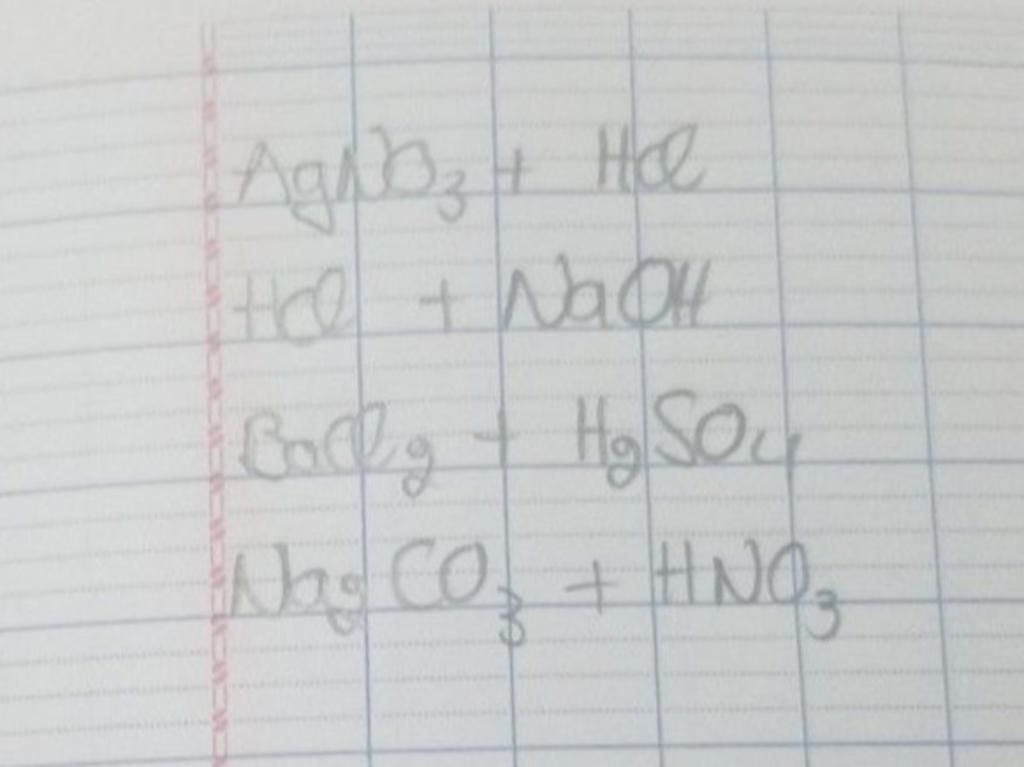 AgNO₃ + HCl
HCl + NaOH
BaCl₂ + H₂SO₄
Na₂CO₃ + HNO₃